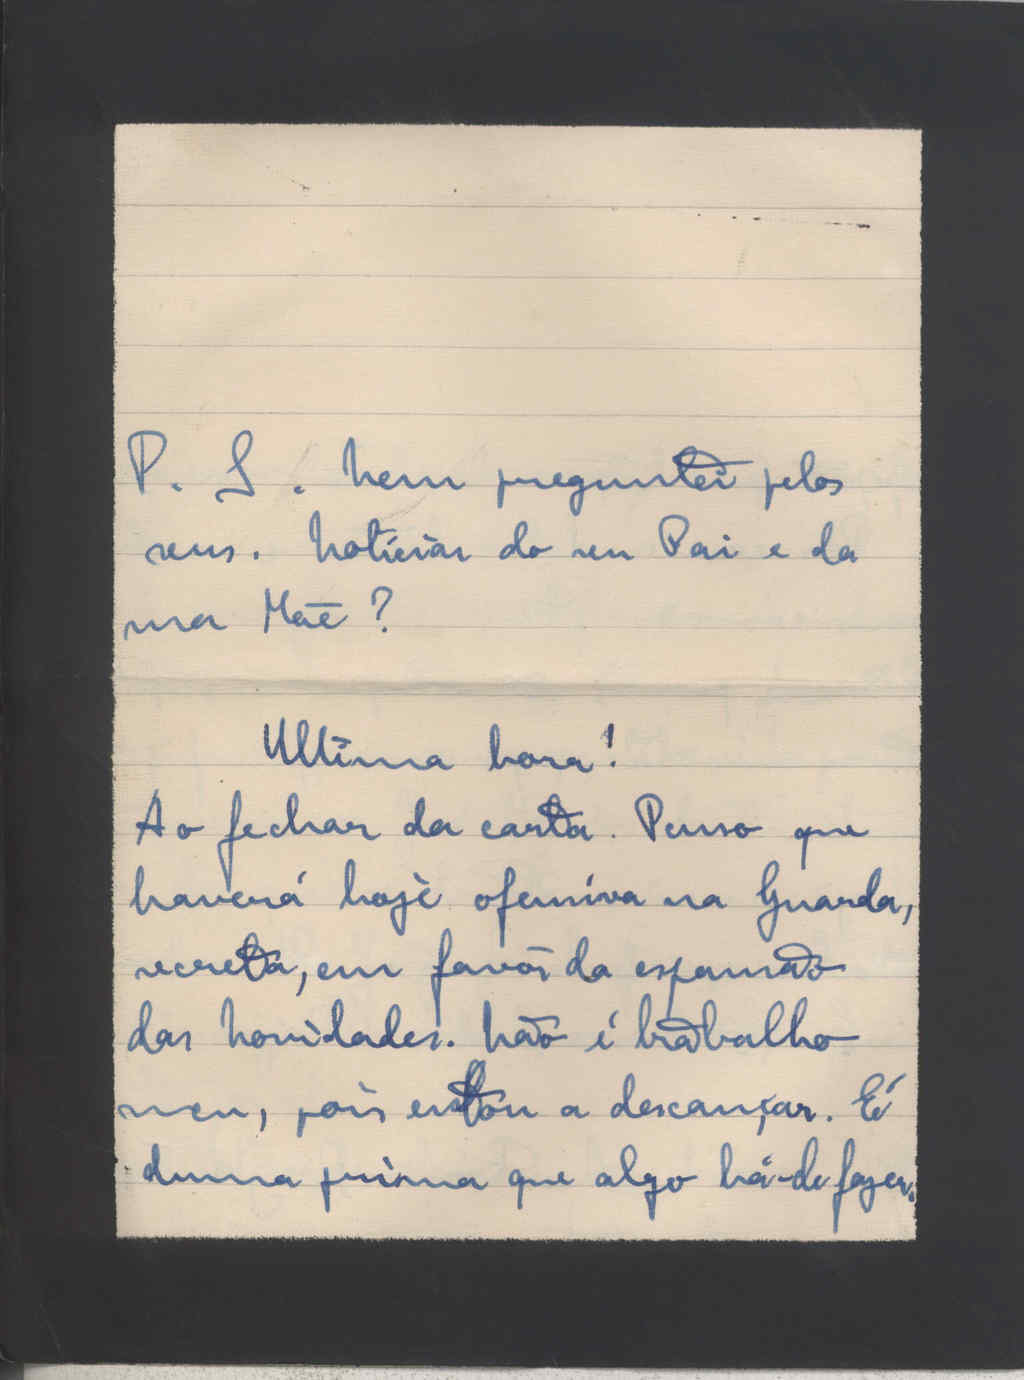 P. S. Nem preguntei pelos
seus. Notícias do seu Pai e da
sua Mãe?
Ultima hora!
Ao fechar da carta. Penso que
haverá hoje ofensiva na Guarda,
secreta, em favor da expansão
das Novidades. Não é trabalho
meu, pois estou a descançar. É
duma prima que algo há-de fazer.